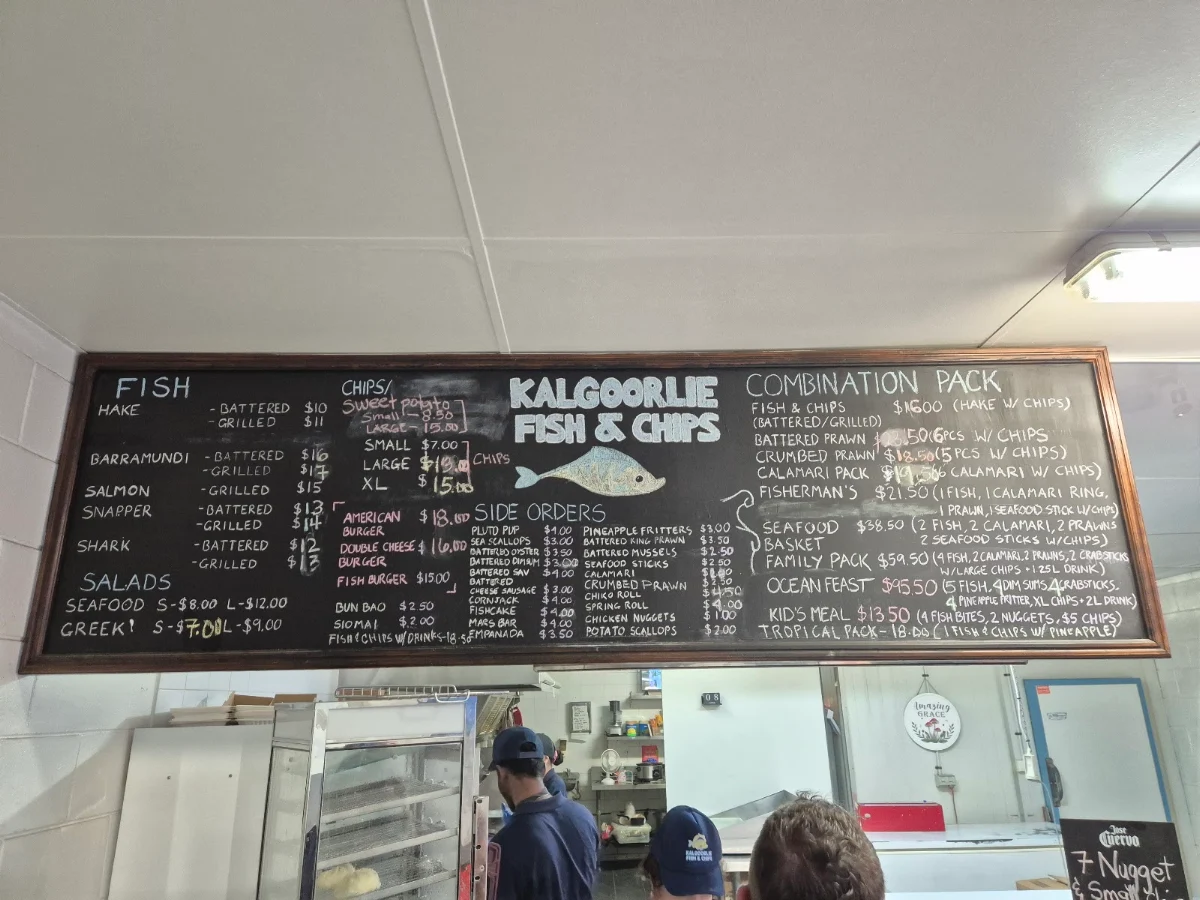 FISH
HAKE - BATTERED $10
- GRILLED $11
BARRAMUNDI - BATTERED $16
- GRILLED $17
SALMON - GRILLED $15
SNAPPER - BATTERED $13
- GRILLED $14
SHARK - BATTERED $12
- GRILLED $13
SALADS
SEAFOOD S-$8.00 L-$12.00
GREEK S-$7.00 L-$9.00
CHIPS/
Sweet potato
Small - 8.50
LARGE - 15.00
SMALL $7.00
LARGE
XL $15.00
CHIPS
AMERICAN $18.00
BURGER
DOUBLE CHEESE $16.00
BURGER
FISH BURGER $15.00
BUN BAO $2.50
SIOMAI $2.00
FISH & CHIPS W/ DRINKS-18.50
KALGOORLIE
FISH & CHIPS
SIDE ORDERS
PLUTO PUP $4.00
SEA SCALLOPS $3.00
BATTERED OYSTER $3.50
BATTERED DIM SIM
BATTERED SAV $4.00
BATTERED
CHEESE SAUSAGE $3.00
CORNJACK $4.00
FISHCAKE $4.00
MARS BAR $4.00
EMPANADA $3.50
PINEAPPLE FRITTERS $3.00
BATTERED KING PRAWN $3.50
BATTERED MUSSELS $2.50
SEAFOOD STICKS $2.50
CALAMARI
CRUMBED PRAWN
CHIKO ROLL
SPRING ROLL $4.00
CHICKEN NUGGETS $1.00
POTATO SCALLOPS $2.00
COMBINATION PACK
FISH & CHIPS $16.00 (HAKE W/ CHIPS)
(BATTERED/GRILLED)
BATTERED PRAWN (6PCS W/ CHIPS)
CRUMBED PRAWN $18.50 (5PCS W/ CHIPS)
CALAMARI PACK (6 CALAMARI W/ CHIPS)
FISHERMAN'S $21.50 (1 FISH, 1 CALAMARI RING,
1 PRAWN, 1 SEAFOOD STICK W/ CHIPS)
SEAFOOD $38.50 (2 FISH, 2 CALAMARI, 2 PRAWNS
BASKET 2 SEAFOOD STICKS W/ CHIPS)
FAMILY PACK $59.50 (4 FISH, 2 CALAMARI, 2 PRAWNS, 2 CRABSTICKS
W/ LARGE CHIPS + 1.25L DRINK)
OCEAN FEAST $95.50 (5 FISH, 4 DIM SUMS, 4 CRABSTICKS,
4 PINEAPPLE FRITTER, XL CHIPS + 2L DRINK)
KID'S MEAL $13.50 (4 FISH BITES, 2 NUGGETS, $5 CHIPS)
TROPICAL PACK - 18.00 (1 FISH & CHIPS W/ PINEAPPLE)
08
Amazing
GRACE
KALGOORLIE
FISH & CHIPS
Jose
Cuervo
7 Nugget
& Small